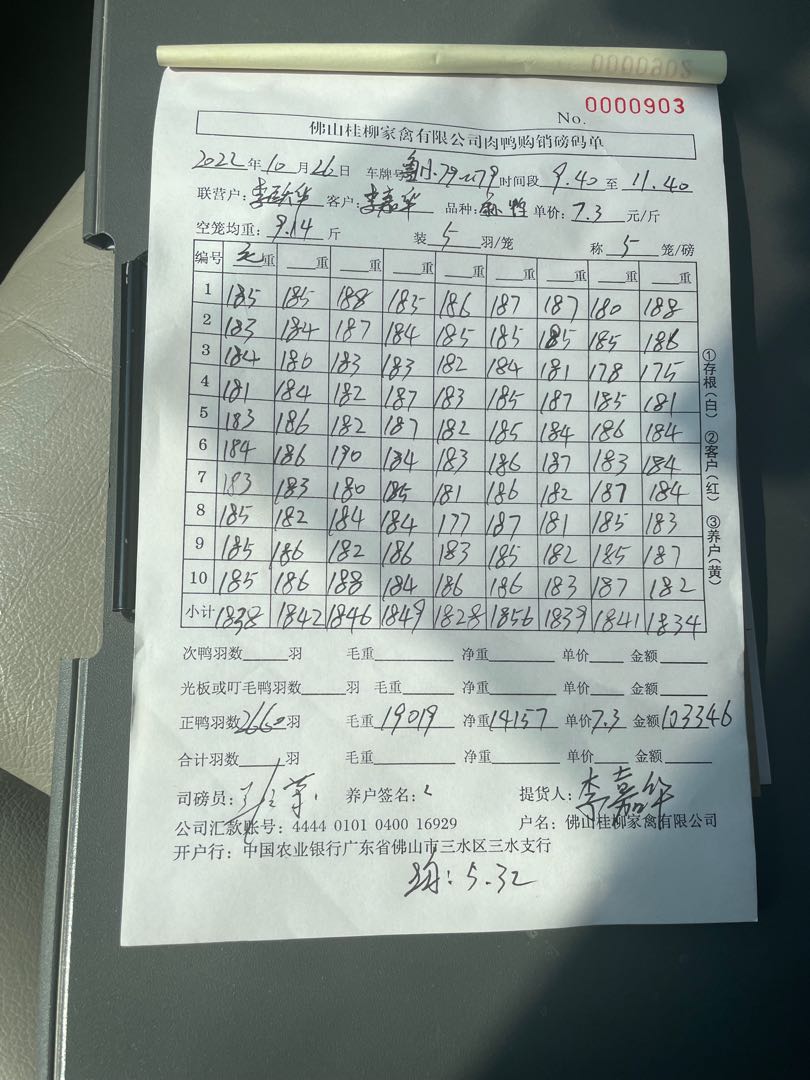 0000902
No. 0000903
佛山桂柳家禽有限公司肉鸭购销磅码单
2022年10月26日 车牌号 时间段 9.40 至 11.40
联营户: 客户:李嘉华 品种: 单价:7.3元/斤
空笼均重:9.14斤 装5羽/笼 称5笼/磅
编号 毛重 重 重 重 重 重 重 重 重
1 185 185 188 185 186 187 187 180 188
2 183 184 187 184 185 185 185 185 186
3 184 180 183 183 182 184 181 178 175
4 181 184 182 187 183 185 187 185 181
5 183 186 182 187 182 185 184 186 184
6 184 186 190 184 183 186 187 183 184
7 183 183 180 185 181 186 182 187 184
8 185 182 184 184 177 187 181 185 183
9 185 186 182 186 183 185 182 185 187
10 185 186 188 184 186 186 183 187 182
小计 1838 1842 1846 1849 1828 1856 1839 1841 1834
①存根(白) ②客户(红) ③养户(黄)
次鸭羽数 羽 毛重 净重 单价 金额
光板或叮毛鸭羽数 羽 毛重 净重 单价 金额
正鸭羽数2660羽 毛重19019 净重14157 单价7.3 金额103346
合计羽数 羽 毛重 净重 单价 金额
司磅员: 养户签名: 提货人:李嘉华
公司汇款账号:4444 0101 0400 16929 户名:佛山桂柳家禽有限公司
开户行:中国农业银行广东省佛山市三水区三水支行
均:5.32